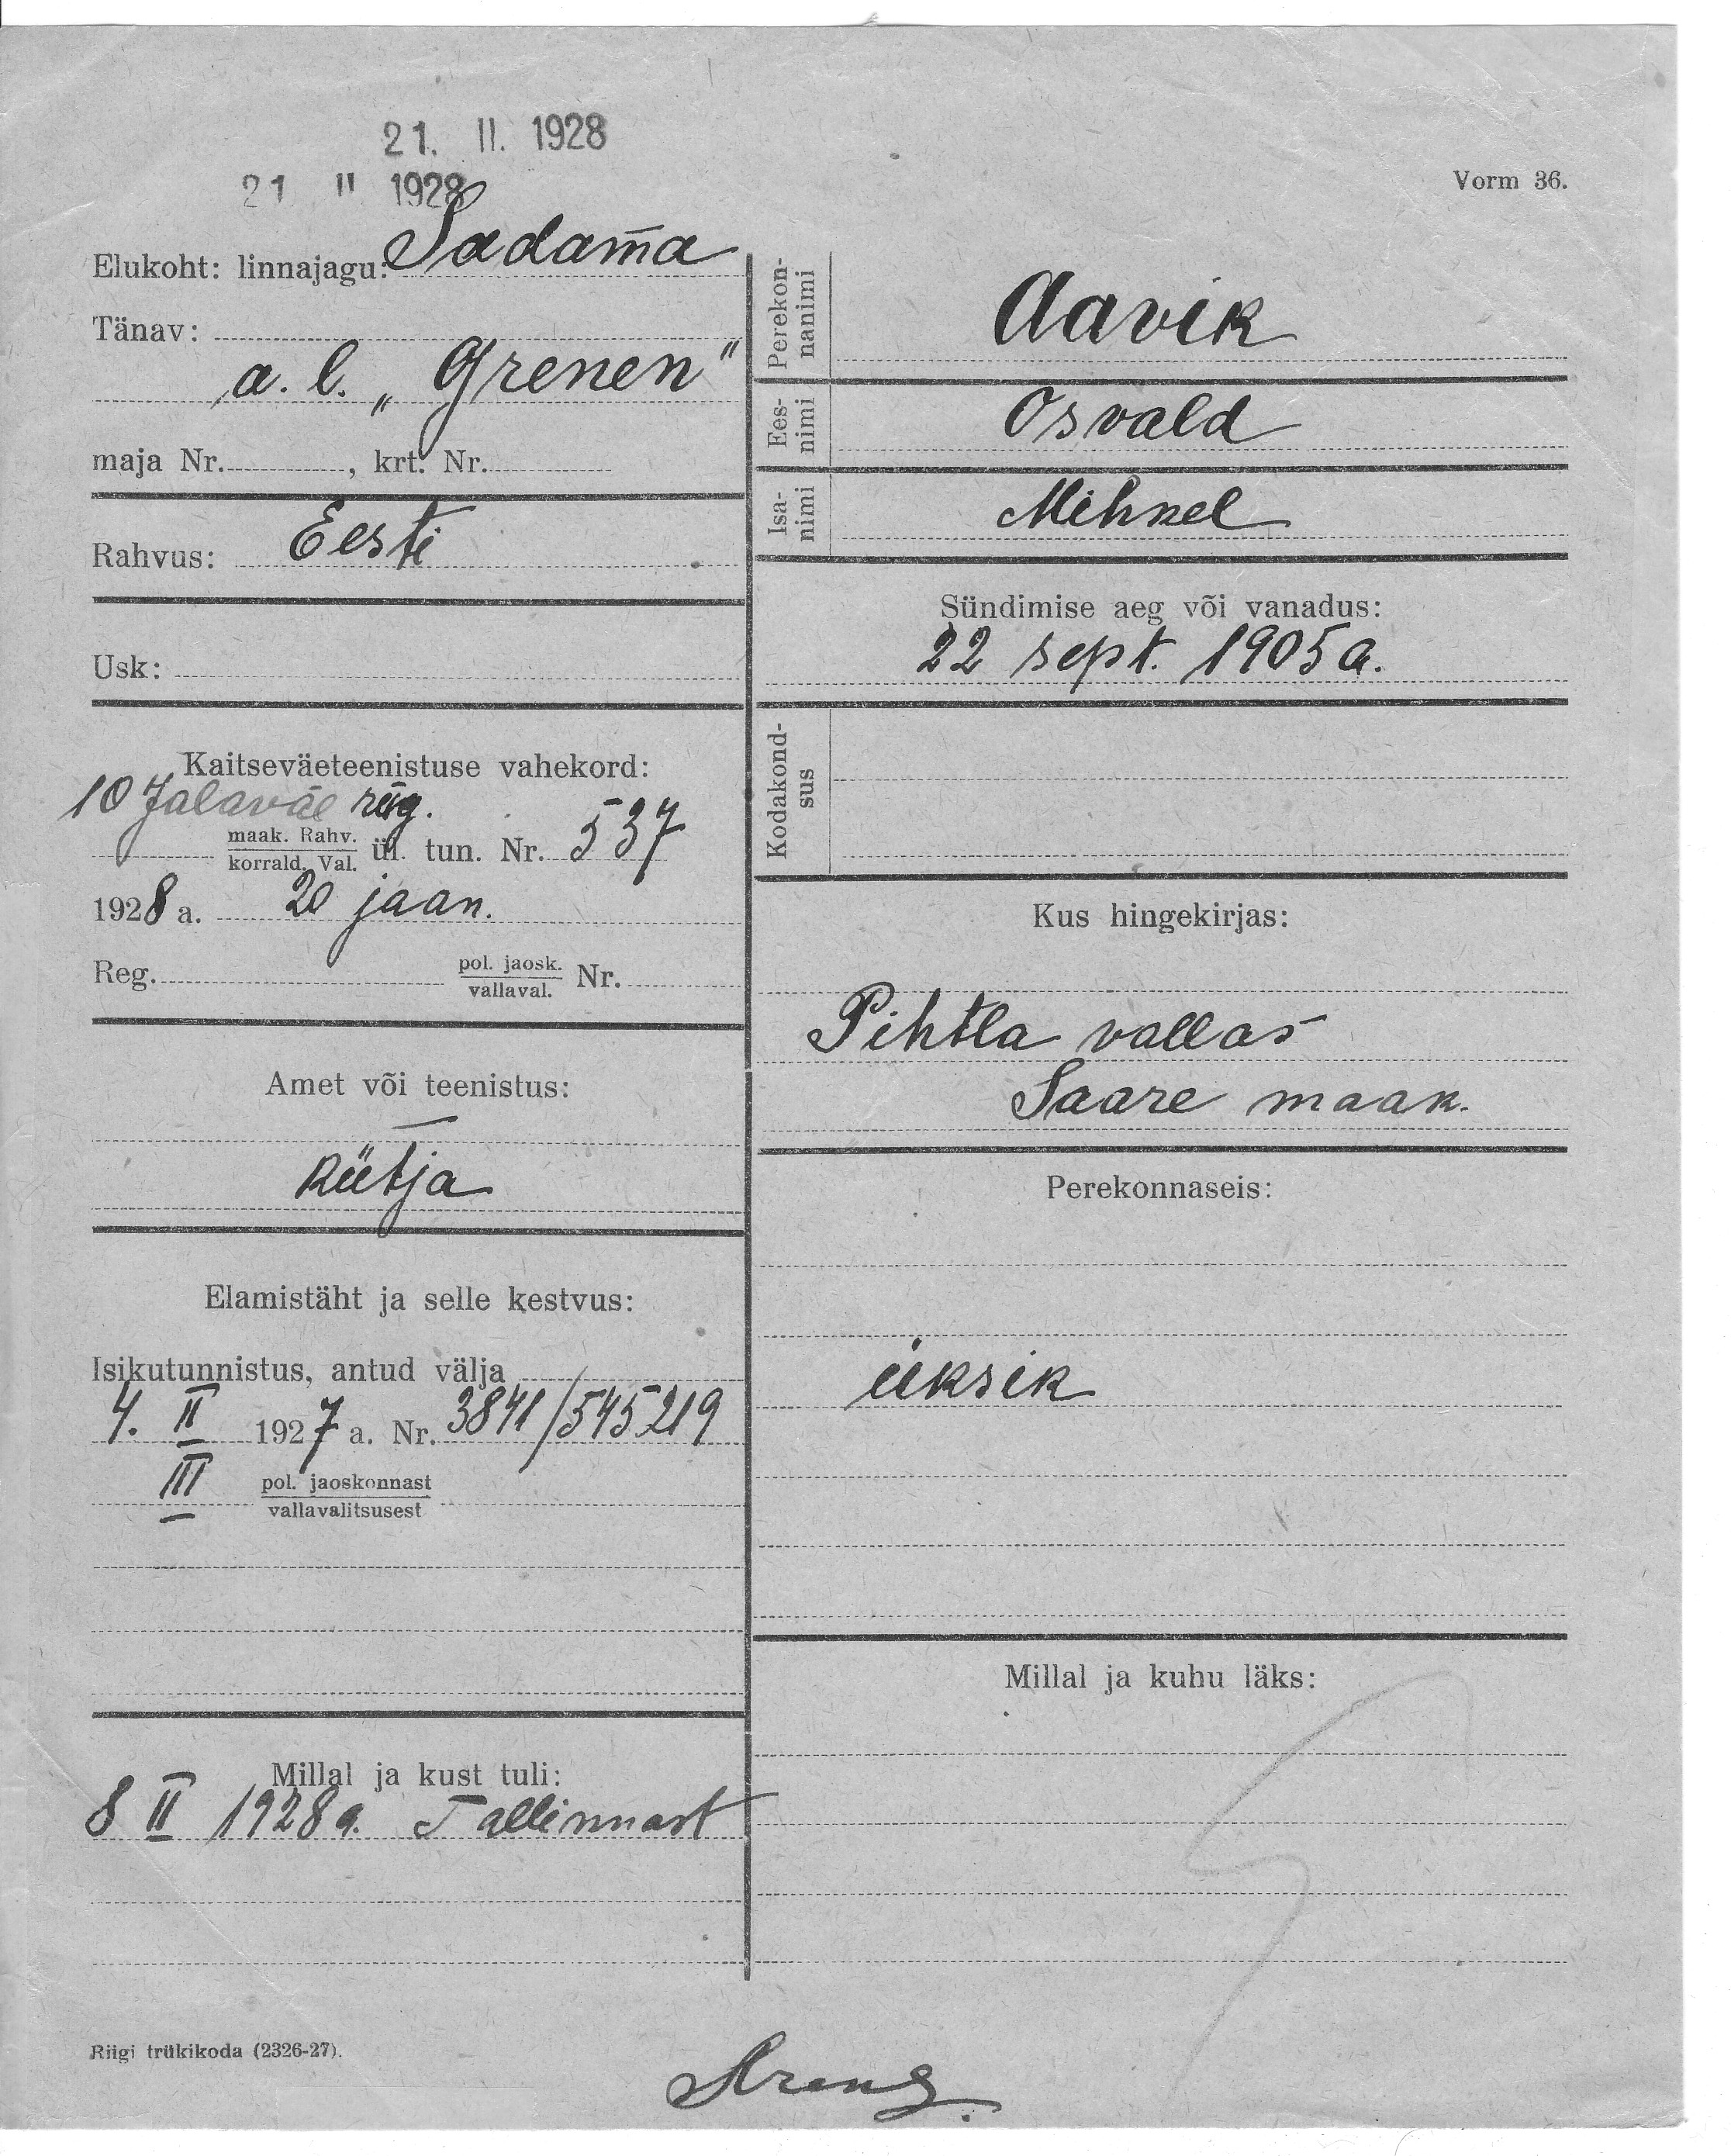 21. II. 1928
21 II 1928
Vorm 36.
Elukoht: linnajagu: Sadama
Tänav:
a. l. „Grenen"
maja Nr. , krt. Nr.
Rahvus: Eesti
Usk:
Kaitseväeteenistuse vahekord:
10 Jalaväe rüg.
maak. Rahv.
korrald. Val. ül. tun. Nr. 537
1928 a. 20 jaan.
Reg. pol. jaosk.
vallaval. Nr.
Amet või teenistus:
kütja
Elamistäht ja selle kestvus:
Isikutunnistus, antud välja
4. II 1927 a. Nr. 3841/545219
III pol. jaoskonnast
vallavalitsusest
Millal ja kust tuli:
8 II 1928 a. Tallinnast
Riigi trükikoda (2326-27).
Perekon-
nanimi
Aavik
Ees-
nimi
Osvald
Isa-
nimi
Mihkel
Sündimise aeg või vanadus:
22 sept. 1905 a.
Kodakond-
sus
Kus hingekirjas:
Pihtla vallas
Saare maak.
Perekonnaseis:
üksik
Millal ja kuhu läks: